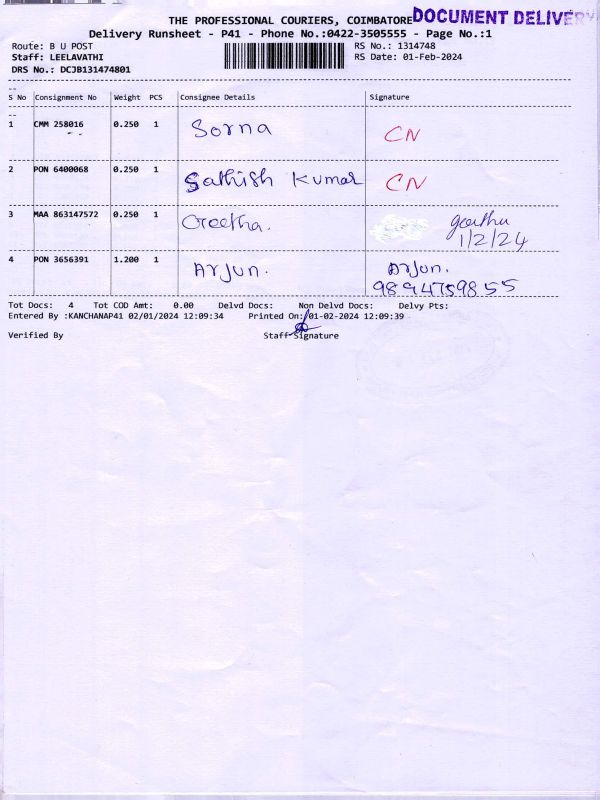 THE PROFESSIONAL COURIERS, COIMBATORE DOCUMENT DELIVERY
Delivery Runsheet - P41 - Phone No.:0422-3505555 - Page No.:1
Route: B U POST RS No.: 1314748
Staff: LEELAVATHI RS Date: 01-Feb-2024
DRS No.: DCJB131474801
S No Consignment No Weight PCS Consignee Details Signature
1 CMM 258016 0.250 1 Sorna CN
2 PON 6400068 0.250 1 Sathish Kumar CN
3 MAA 863147572 0.250 1 Geetha. geetha
1/2/24
4 PON 3656391 1.200 1 Arjun. Arjun.
9894759855
Tot Docs: 4 Tot COD Amt: 0.00 Delvd Docs: Non Delvd Docs: Delvy Pts:
Entered By :KANCHANAP41 02/01/2024 12:09:34 Printed On:/01-02-2024 12:09:39
Verified By Staff Signature